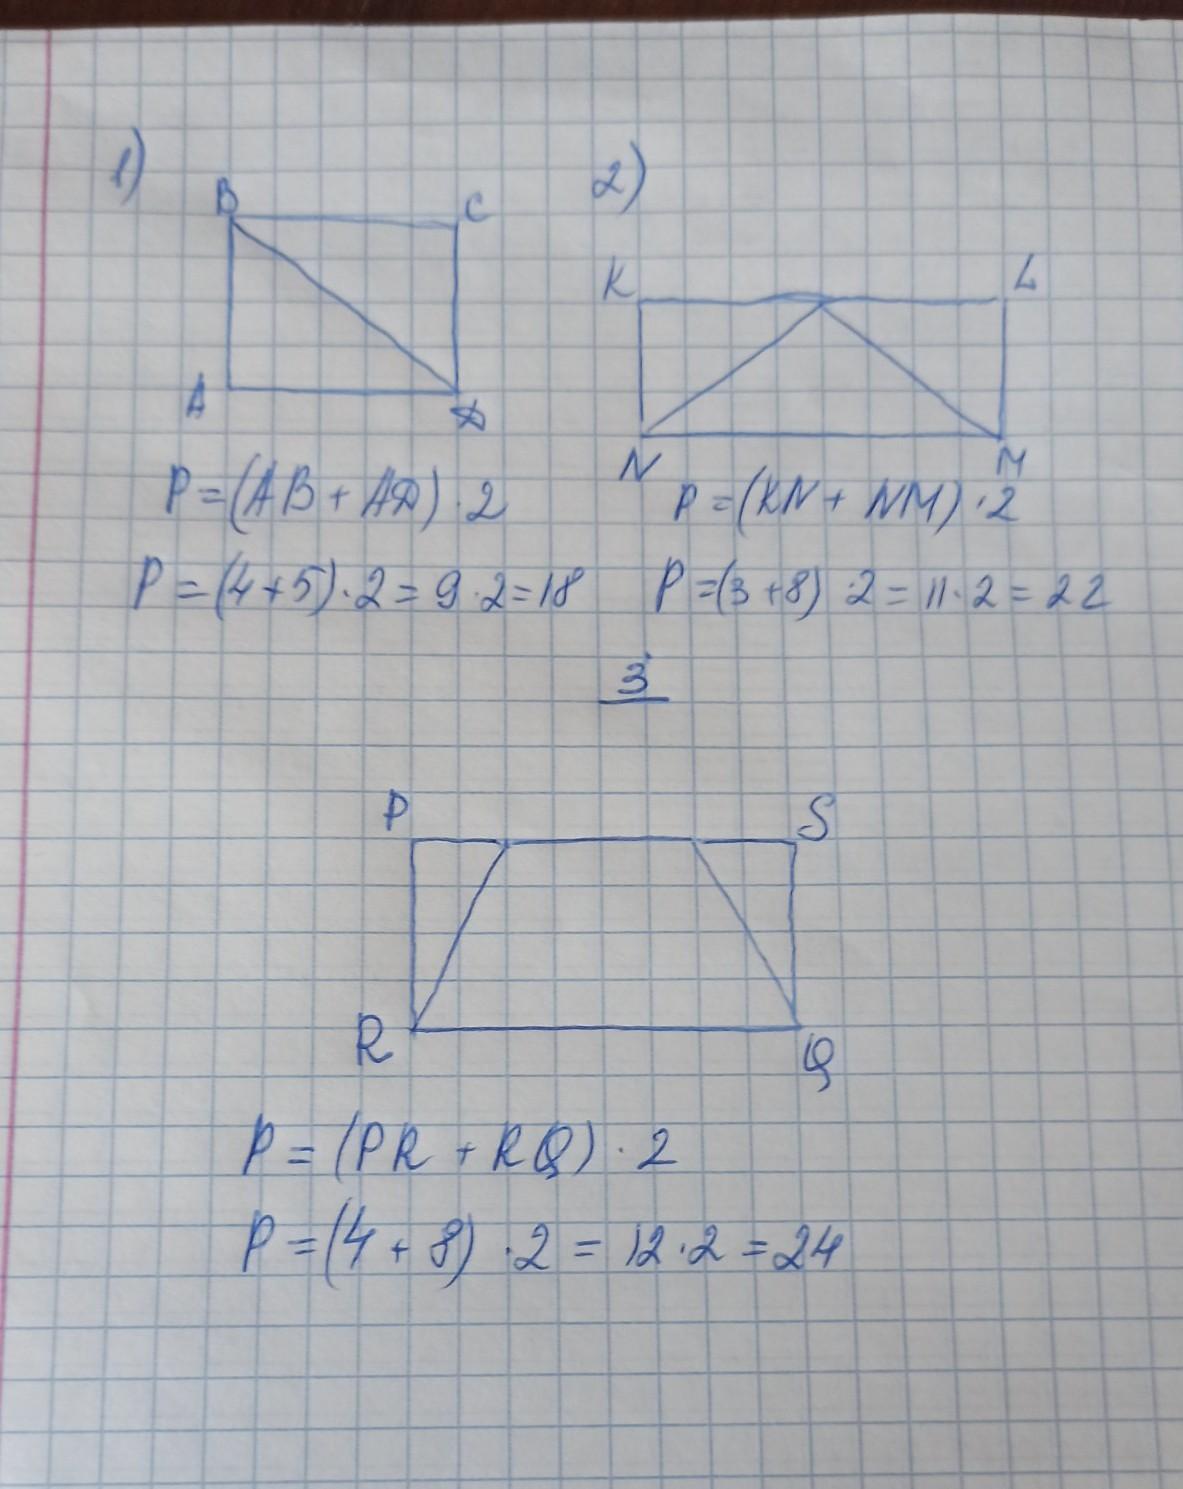 1)
B C
A D
P = (AB + AD) · 2
P = (4 + 5) · 2 = 9 · 2 = 18
2)
K L
N M
P = (KN + NM) · 2
P = (3 + 8) · 2 = 11 · 2 = 22
3
P S
R Q
P = (PR + RQ) · 2
P = (4 + 8) · 2 = 12 · 2 = 24